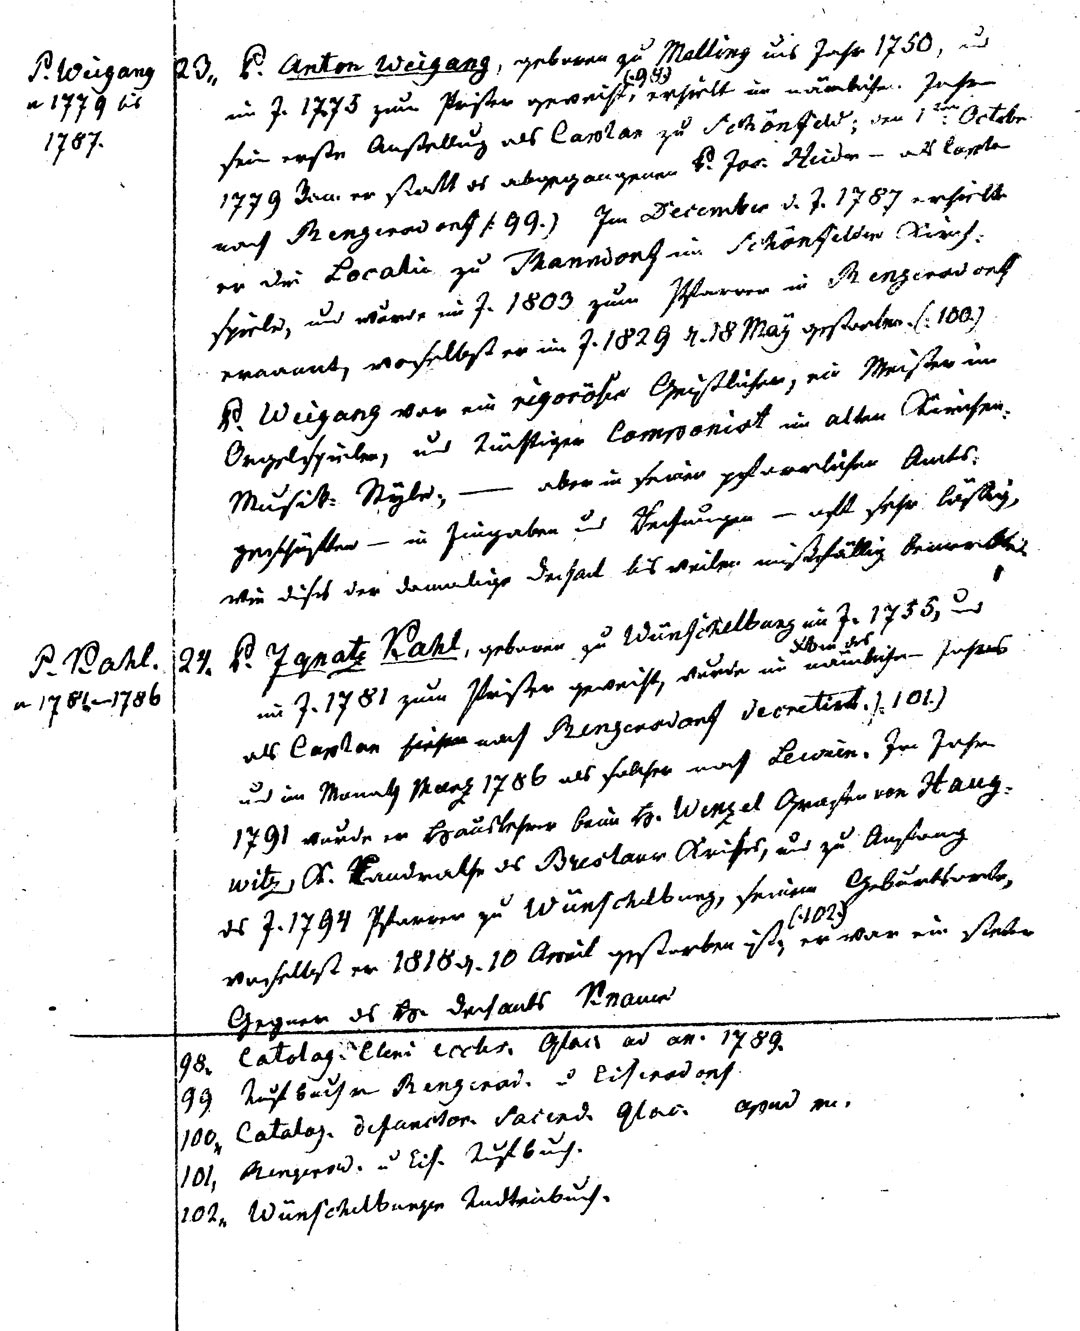 P. Weigang
v 1779 bis
1787.
23., P. Anton Weigang, geboren zu Melling im Jahr 1750, und
im J. 1775 zum Priester geweiht, (:98:) erhielt im nämlichen Jahre
sein erste Anstellung als Caplan zu Schönfeld; den 1ten October
1779 kam er statt des abgegangenen P. Jos. – als Caplan
nach Rengersdorf (: 99.) Im December d. J. 1787 erhielt
er die Localie zu Thanndorf im Schönfelder Kirch-
spiele, und wurde im J. 1803 zum Pfarrer in Rengersdorf
ernannt, woselbst er im J. 1829 d. 18 May gestorben. (: 100.)
P. Weigang war ein rigoröser Geistlicher, ein Meister im
Orgelspielen, und tüchtiger Componist im alten Kirchen-
Musik-Style, — aber in seinen pfarrlichen Amts-
geschäften — in Eingaben und Rechnungen — oft sehr lässig,
wie dieses der damalige Dechant bisweilen mißfällig bemerkte.
P. Kahl.
v 1781–1786
24. P. Ignatz Kahl, geboren zu Wünschelburg im J. 1755, und
im J. 1781 zum Priester geweiht, wurde im nämlichen Jahres
als Caplan hieher nach Rengersdorf decretirt. (: 101.)
und im Monath März 1786 als solcher nach Lewin. Im Jahre
1791 wurde er Hauslehrer beim H. Wenzel Grafen von Haug-
witz, K. Landrathe des Breslauer Kreises, und zu Anfang
des J. 1794 Pfarrer zu Wünschelburg, seinem Geburtsorte,
woselbst er 1818 d. 10 April gestorben ist, (:102:) er war ein steter
Gegner des H. Dechants Knauer
98. Catalog. Cleri eccles. Glac. ad an. 1789.
99 Taufbuch v Rengersd. u Eisersdorf
100., Catalog. defunctor. Sacerd. Glac. apud me.
101, Rengersd. u Eis. Taufbuch.
102., Wünschelburger Todtenbuch.